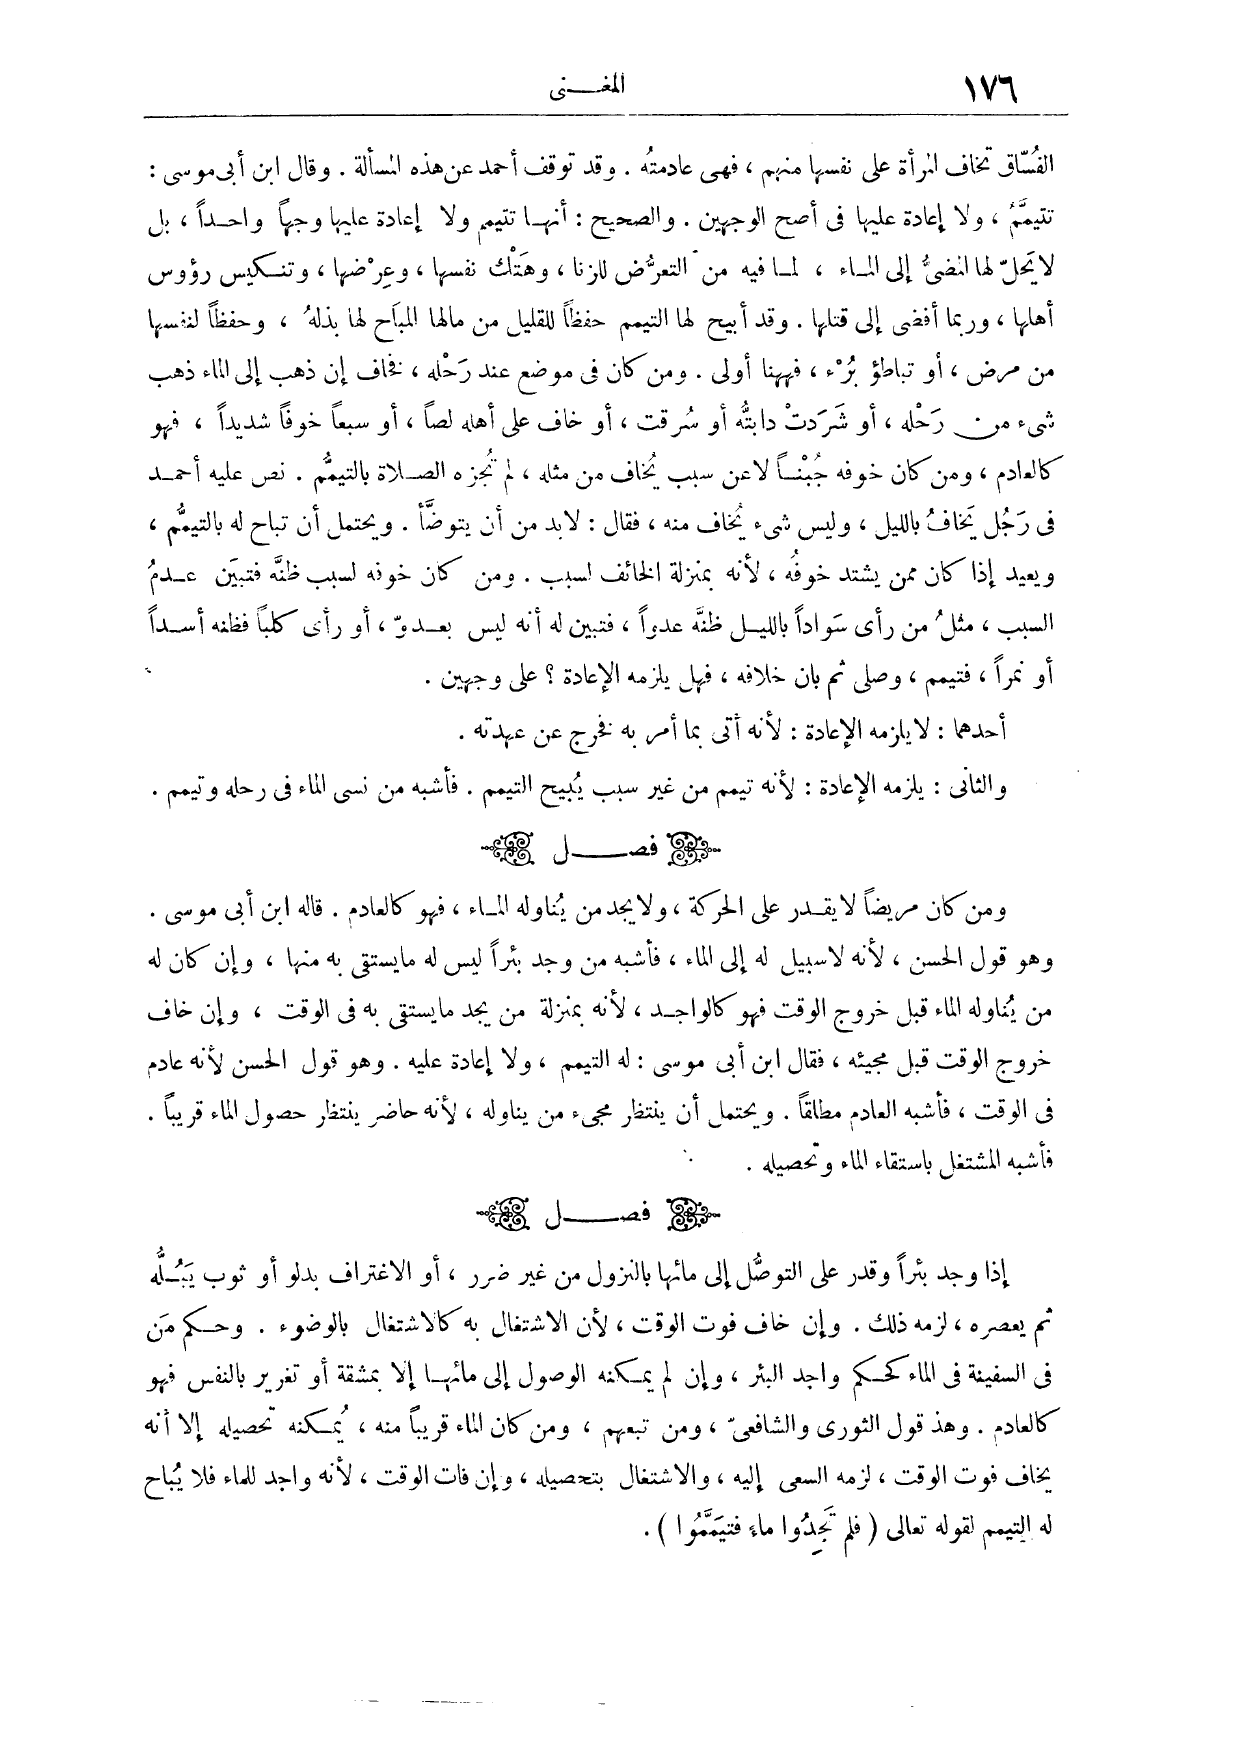 ١٧٦
المغـــنى
الفُسّاق تخاف المرأة على نفسها منهم ، فهى عادمتُه . وقد توقف أحمد عن هذه المسألة . وقال ابن أبى موسى :
تتيمَّمُ ، ولا إعادة عليها فى أصح الوجهين . والصحيح : أنهـا تتيمم ولا إعادة عليها وجهاً واحـداً ، بل
لا يَحلّ لها المضىُّ إلى المـاء ، لمـا فيه من التعرُّض للزنا ، وهَتْك نفسها ، وعِرْضها ، وتنـكيس رؤوس
أهلها ، وربما أفضى إلى قتلها . وقد أبيح لها التيمم حفظاً للقليل من مالها المبَاح لها بذلهُ ، وحفظاً لنفسها
من مرض ، أو تباطؤ بُرْء ، فههنا أولى . ومن كان فى موضع عند رَحْله ، فخاف إن ذهب إلى الماء ذهب
شىء من رَحْله ، أو شَرَدتْ دابتُّه أو سُرقت ، أو خاف على أهله لصاً ، أو سبعاً خوفًا شديداً ، فهو
كالعادم ، ومن كان خوفه جُبْنـاً لا عن سبب يُخاف من مثله ، لم تُجزه الصـلاة بالتيمُّم . نص عليه أحمـد
فى رَجُل يَخافُ بالليل ، وليس شىء يُخاف منه ، فقال : لابد من أن يتوضَّأ . ويحتمل أن تباح له بالتيمُّم ،
ويعيد إذا كان ممن يشتد خوفُه ، لأنه بمنزلة الخائف لسبب . ومن كان خوفه لسبب ظنَّه فتبيَن عـدمُ
السبب ، مثلُ من رأى سَواداً بالليـل ظنَّه عدواً ، فتبين له أنه ليس بعـدوّ ، أو رأى كلباً فظنه أسـداً
أو نمراً ، فتيمم ، وصلى ثم بان خلافه ، فهل يلزمه الإعادة ؟ على وجهين .
أحدهما : لا يلزمه الإعادة : لأنه أتى بما أمر به فخرج عن عهدته .
والثانى : يلزمه الإعادة : لأنه تيمم من غير سبب يُبيح التيمم . فأشبه من نسى الماء فى رحله وتيمم .
فصـــل
ومن كان مريضاً لا يقـدر على الحركة ، ولا يجد من يُناوله المـاء ، فهو كالعادم . قاله ابن أبى موسى .
وهو قول الحسن ، لأنه لاسبيل له إلى الماء ، فأشبه من وجد بئراً ليس له مايستقى به منها ، وإن كان له
من يُناوله الماء قبل خروج الوقت فهو كالواجـد ، لأنه بمنزلة من يجد مايستقى به فى الوقت ، وإن خاف
خروج الوقت قبل مجيئه ، فقال ابن أبى موسى : له التيمم ، ولا إعادة عليه . وهو قول الحسن لأنه عادم
فى الوقت ، فأشبه العادم مطلقاً . ويحتمل أن ينتظر مجىء من يناوله ، لأنه حاضر ينتظر حصول الماء قريباً .
فأشبه المشتغل باستقاء الماء وتحصيله .
فصـــل
إذا وجد بئراً وقدر على التوصُّل إلى مائها بالنزول من غير ضرر ، أو الاغتراف بدلو أو ثوب يَبُـلُّه
ثم يعصره ، لزمه ذلك . وإن خاف فوت الوقت ، لأن الاشتغال به كالاشتغال بالوضوء . وحـكم مَن
فى السفينة فى الماء كحـكم واجد البئر ، وإن لم يمـكنه الوصول إلى مائهـا إلا بمشقة أو تغرير بالنفس فهو
كالعادم . وهذ قول الثورى والشافعىّ ، ومن تبعهم ، ومن كان الماء قريباً منه ، يُمـكنه تحصيله إلا أنه
يخاف فوت الوقت ، لزمه السعى إليه ، والاشتغال بتحصيله ، وإن فات الوقت ، لأنه واجد للماء فلا يُباح
له التيمم لقوله تعالى ( فلم تَجِدُوا ماء فتيَمَّمُوا ) .